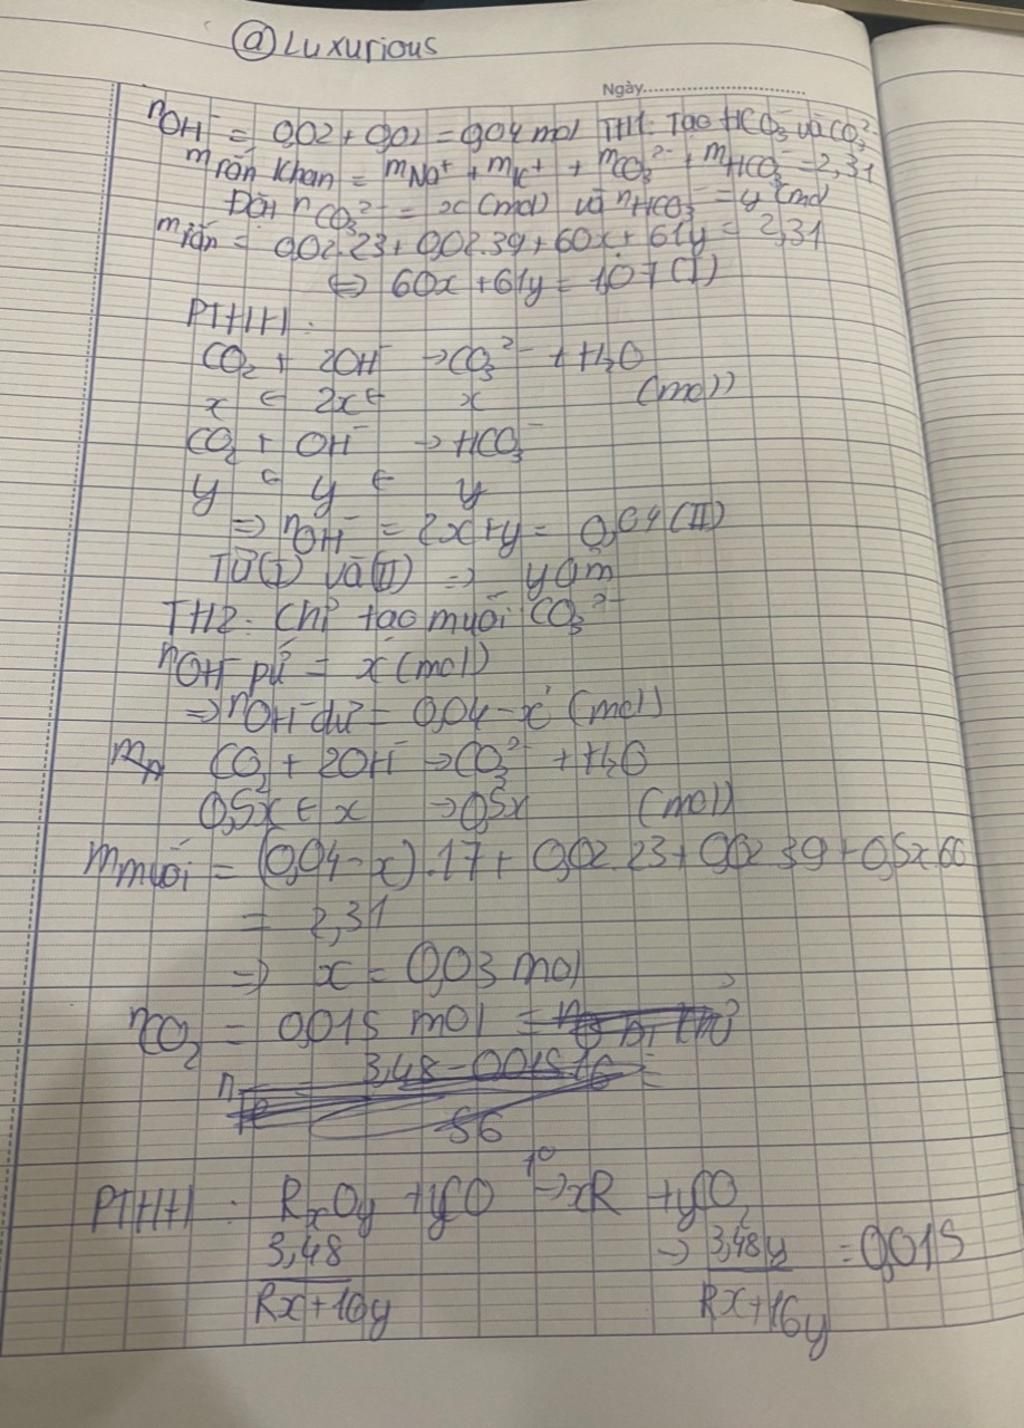 @Luxurious
Ngày
nOH⁻ = 0,02 + 0,02 = 0,04 mol TH1: Tạo HCO₃⁻ và CO₃²⁻
m rắn khan = mNa⁺ + mK⁺ + mCO₃²⁻ + mHCO₃⁻ = 2,31
Đặt nCO₃²⁻ = x (mol) và nHCO₃⁻ = y (mol
m rắn = 0,02.23 + 0,02.39 + 60x + 61y = 2,31
⇔ 60x + 61y = 1,07 (I)
PTHH:
CO₂ + 2OH⁻ → CO₃²⁻ + H₂O
x ← 2x ← x (mol)
CO₂ + OH⁻ → HCO₃⁻
y ← y ← y
⇒ nOH⁻ = 2x + y = 0,04 (II)
Từ (I) và (II) ⇒ y âm
TH2: Chỉ tạo muối CO₃²⁻
nOH⁻ pứ = x (mol)
⇒ nOH⁻ dư = 0,04 - x (mol)
CO₂ + 2OH⁻ → CO₃²⁻ + H₂O
0,5x ← x → 0,5x (mol)
m muối = (0,04 - x).17 + 0,02.23 + 0,02.39 + 0,5x.60
= 2,31
⇒ x = 0,03 mol
nCO₂ = 0,015 mol =
3,48 - 0,015.16
56
PTHH: RxOy + yCO t° → xR + yCO₂
3,48 → 3,48y = 0,015
Rx + 16y Rx + 16y